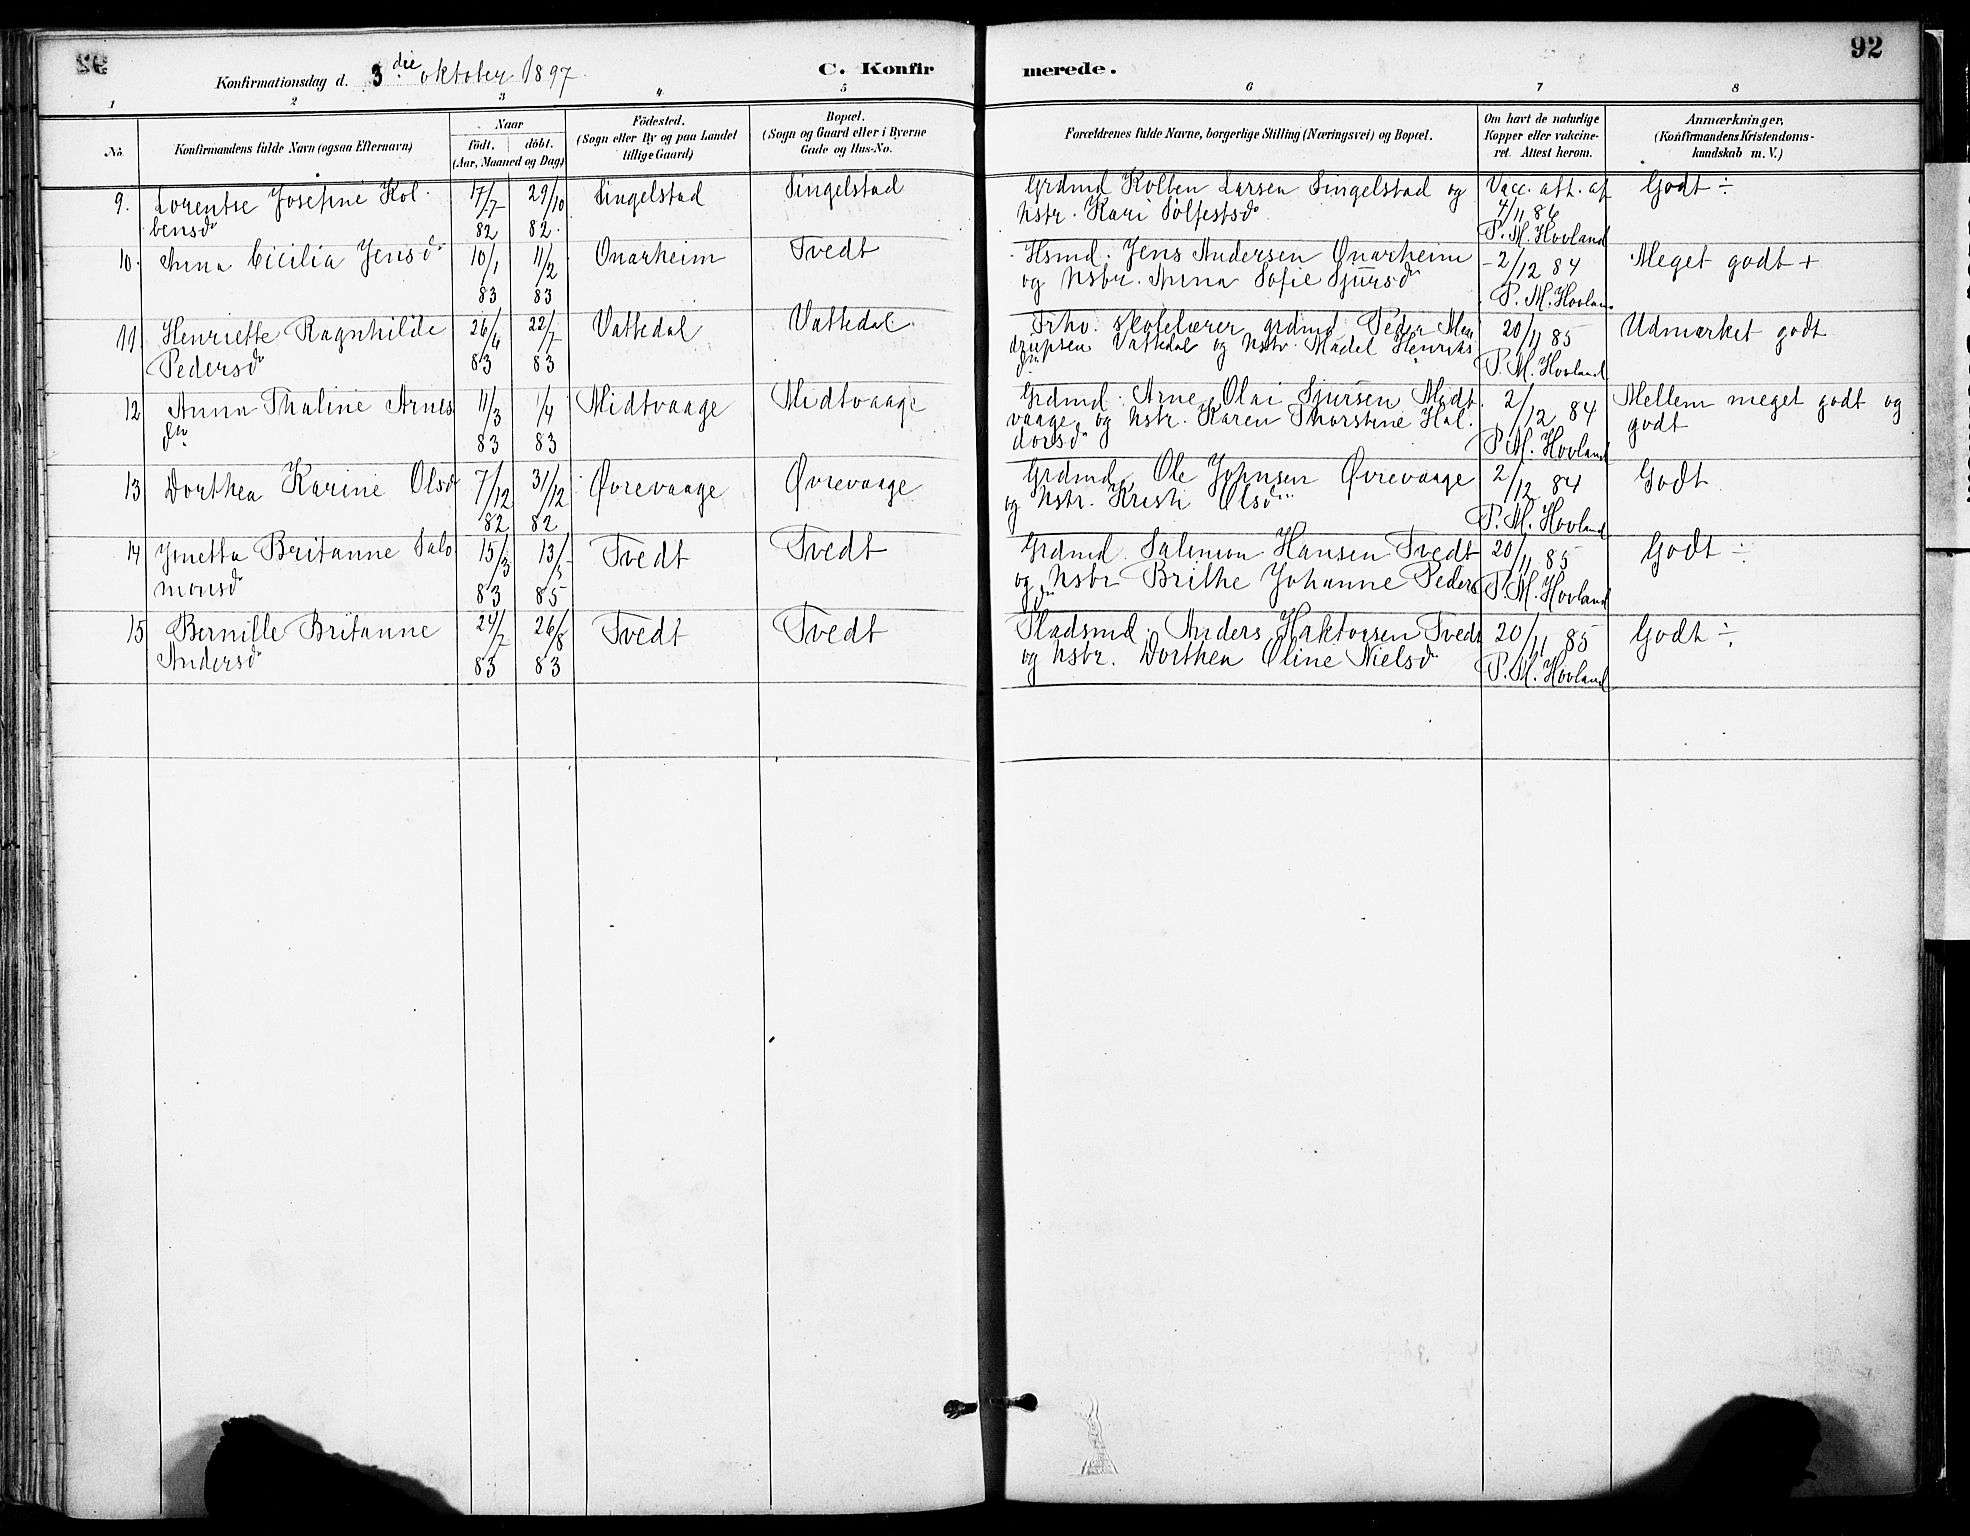 92
Konfirmationsdag d. 3die oktober 1897.
C. Konfirmerede.
1 2 3 4 5 6 7 8
No. | Konfirmandens fulde Navn (ogsaa Efternavn) | Naar födt. döbt. (Aar, Maaned og Dag) | Födested. (Sogn eller By og paa Landet tillige Gaard) | Bopæl. (Sogn og Gaard eller i Byerne Gade og Hus-No. | Forældrenes fulde Navne, borgerlige Stilling (Næringsvei) og Bopæl. | Om havt de naturlige Kopper eller vakcineret. Attest herom. | Anmærkninger, (Konfirmandens Kristendomskundskab m. V.)
9. | Lorentse Josefine Kolbensdr | 17/7 82 | 29/10 82. | Singelstad | Singelstad | Grdmd Kolben Larsen Singelstad og hstr. Kari Solfestsdr | Vacc. att. af 4/11 86 P. M. Hovland | Godt ÷
10. | Anna Cicilia Jensdr | 10/1 83 | 11/2 83 | Onarheim | Tvedt | Hsmd. Jens Andersen Onarheim og hstr. Anna Sofie Sjursdr | 2/12 84 P. M. Hovland | Meget godt +
11 | Henriette Ragnhilde Pedersdr | 26/4 83 | 22/7 83 | Vattedal | Vattedal | Frhv. skolelærer grdmd Peder Mendrupsen Vattedal og hstr. Madel Henriksdr | 20/11 85 P. M. Hovland | Udmærket godt
12 | Anna Thaline Arnesdr | 11/3 83 | 1/4 83 | Midtvaage | Midtvaage | Grdmd. Arne Olai Sjursen Midtvaage og hstr. Karen Thorstine Haldorsdr | 2/12 84 P. M. Hovland | Mellem meget godt og godt
13 | Dorthea Karine Olsdr | 7/12 82 | 31/12 82 | Øvrevaage | Øvrevaage | Grdmd. Ole Johnsen Øvrevaage og hstr. Kristi Olsdr | 2/12 84 P. M. Hovland | Godt
14 | Jonetta Britanne Salomonsdr | 15/3 83 | 13/5 85 | Tvedt | Tvedt | Grdmd. Salomon Hansen Tvedt og hstr Brithe Johanne Pedersdr | 20/11 85 P. M. Hovland | Godt ÷
15 | Bernille Britanne Andersdr | 24/7 83 | 26/8 83 | Tvedt | Tvedt | Pladsmd. Anders Haktorsen Tvedt og hstr. Dorthea Oline Nielsdr | 20/11 85 P. M. Hovland | Godt ÷